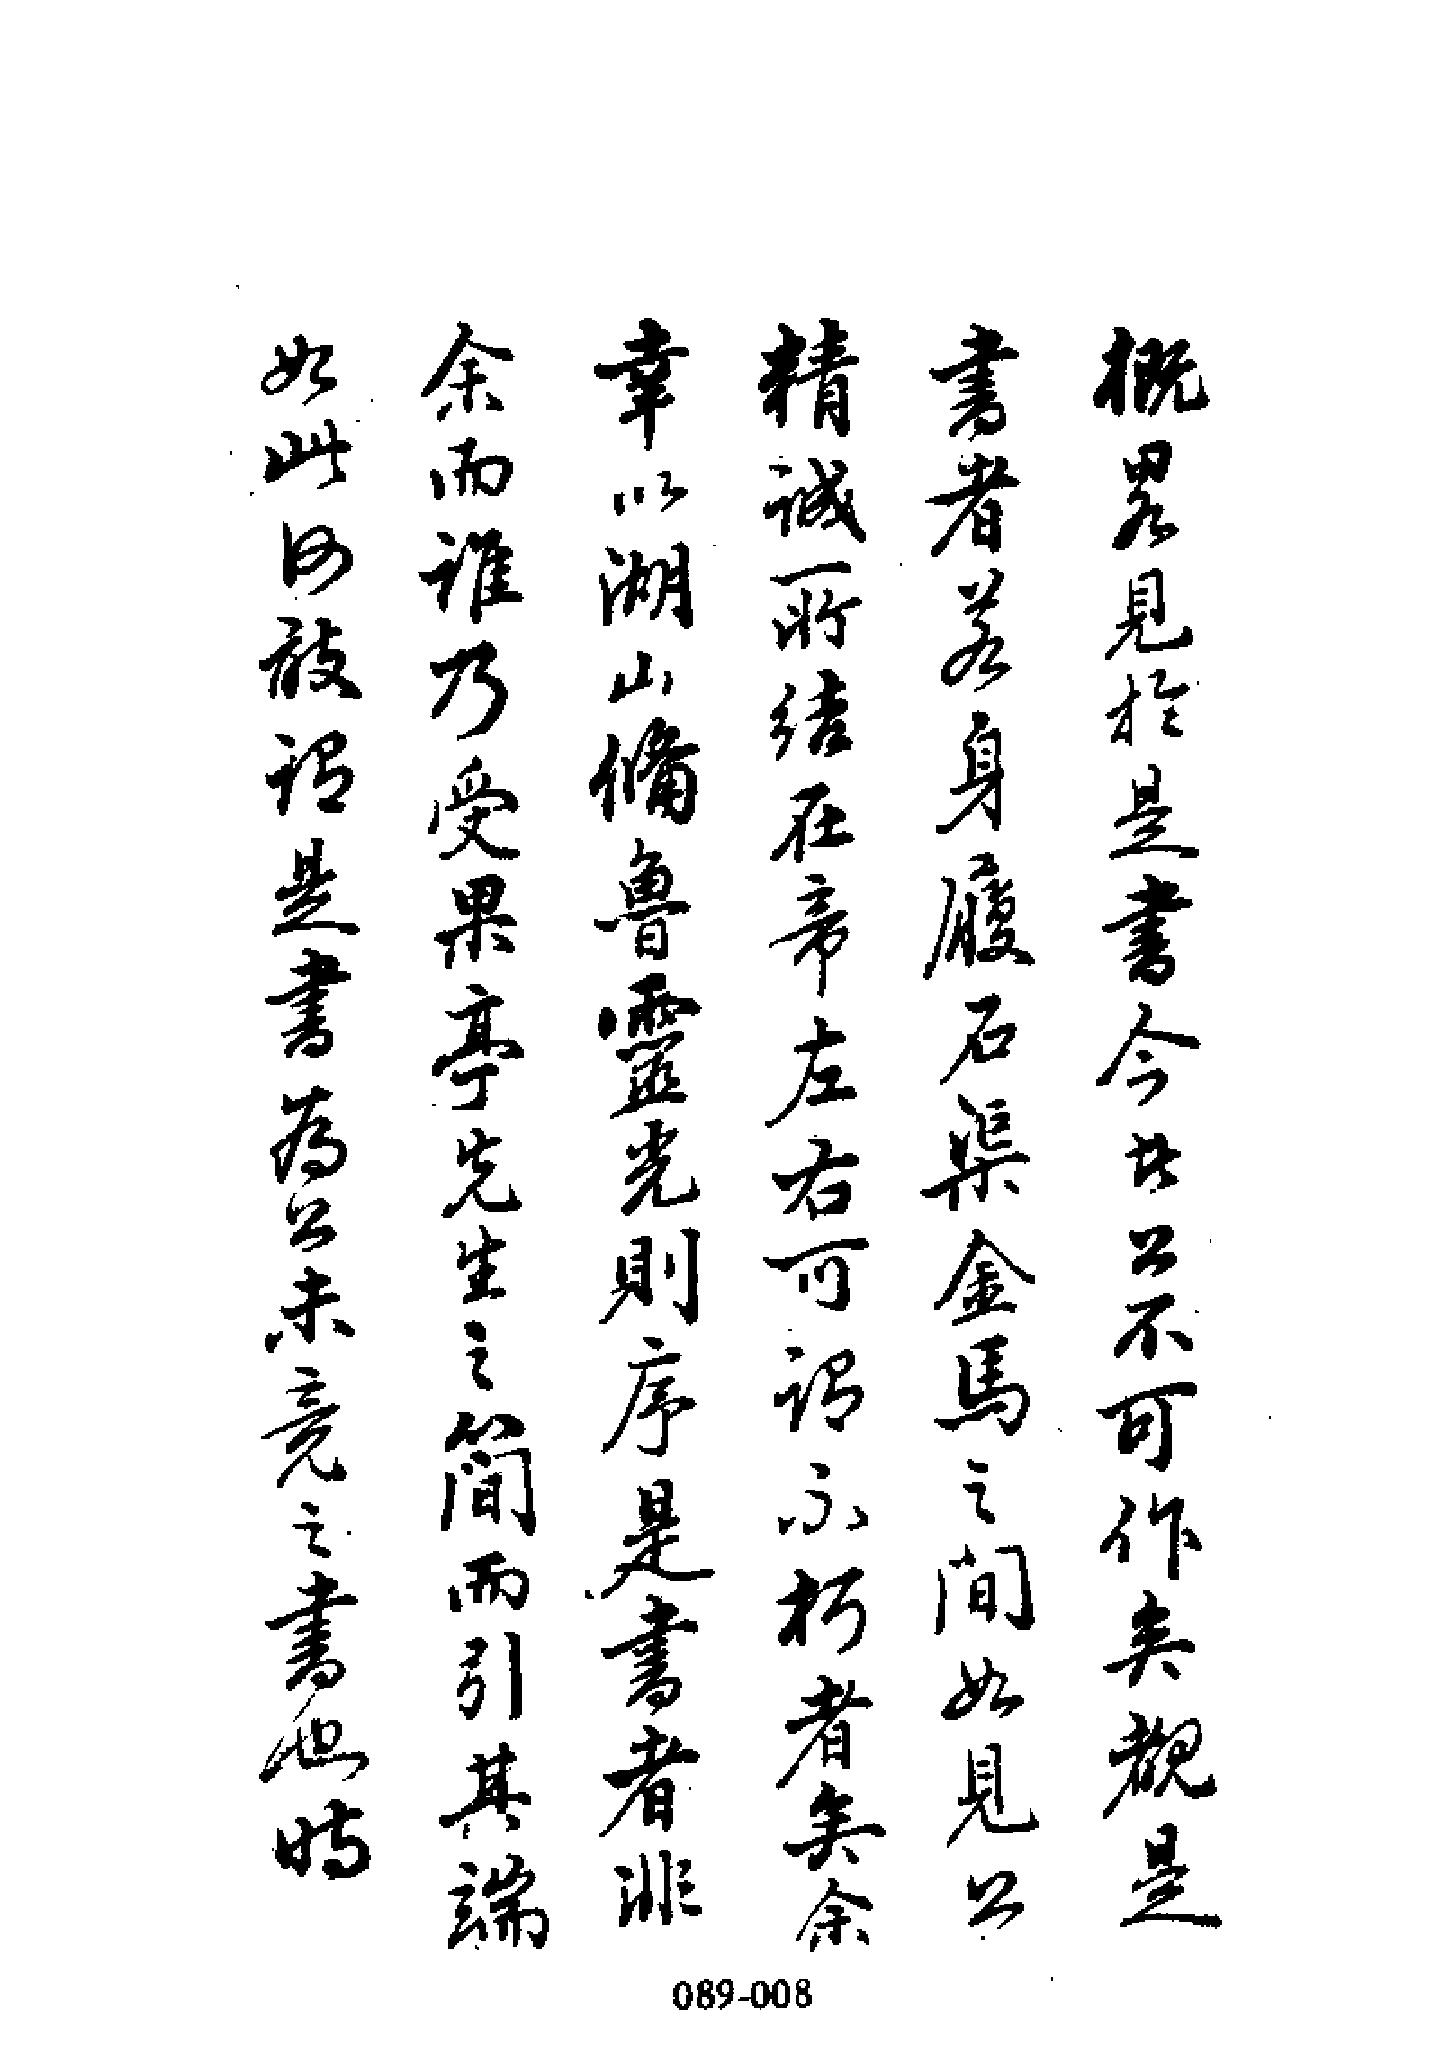 概畧見於是書今世公不可作矣覩是
書者若身履石渠金馬之間如見公
精誠一所結在帝左右可謂不朽者矣余
幸以湖山備魯靈光則序是書者非
余而誰乃受果亭先生之簡而引其端
如此何敢謂是書為公未竟之書也時
089-008